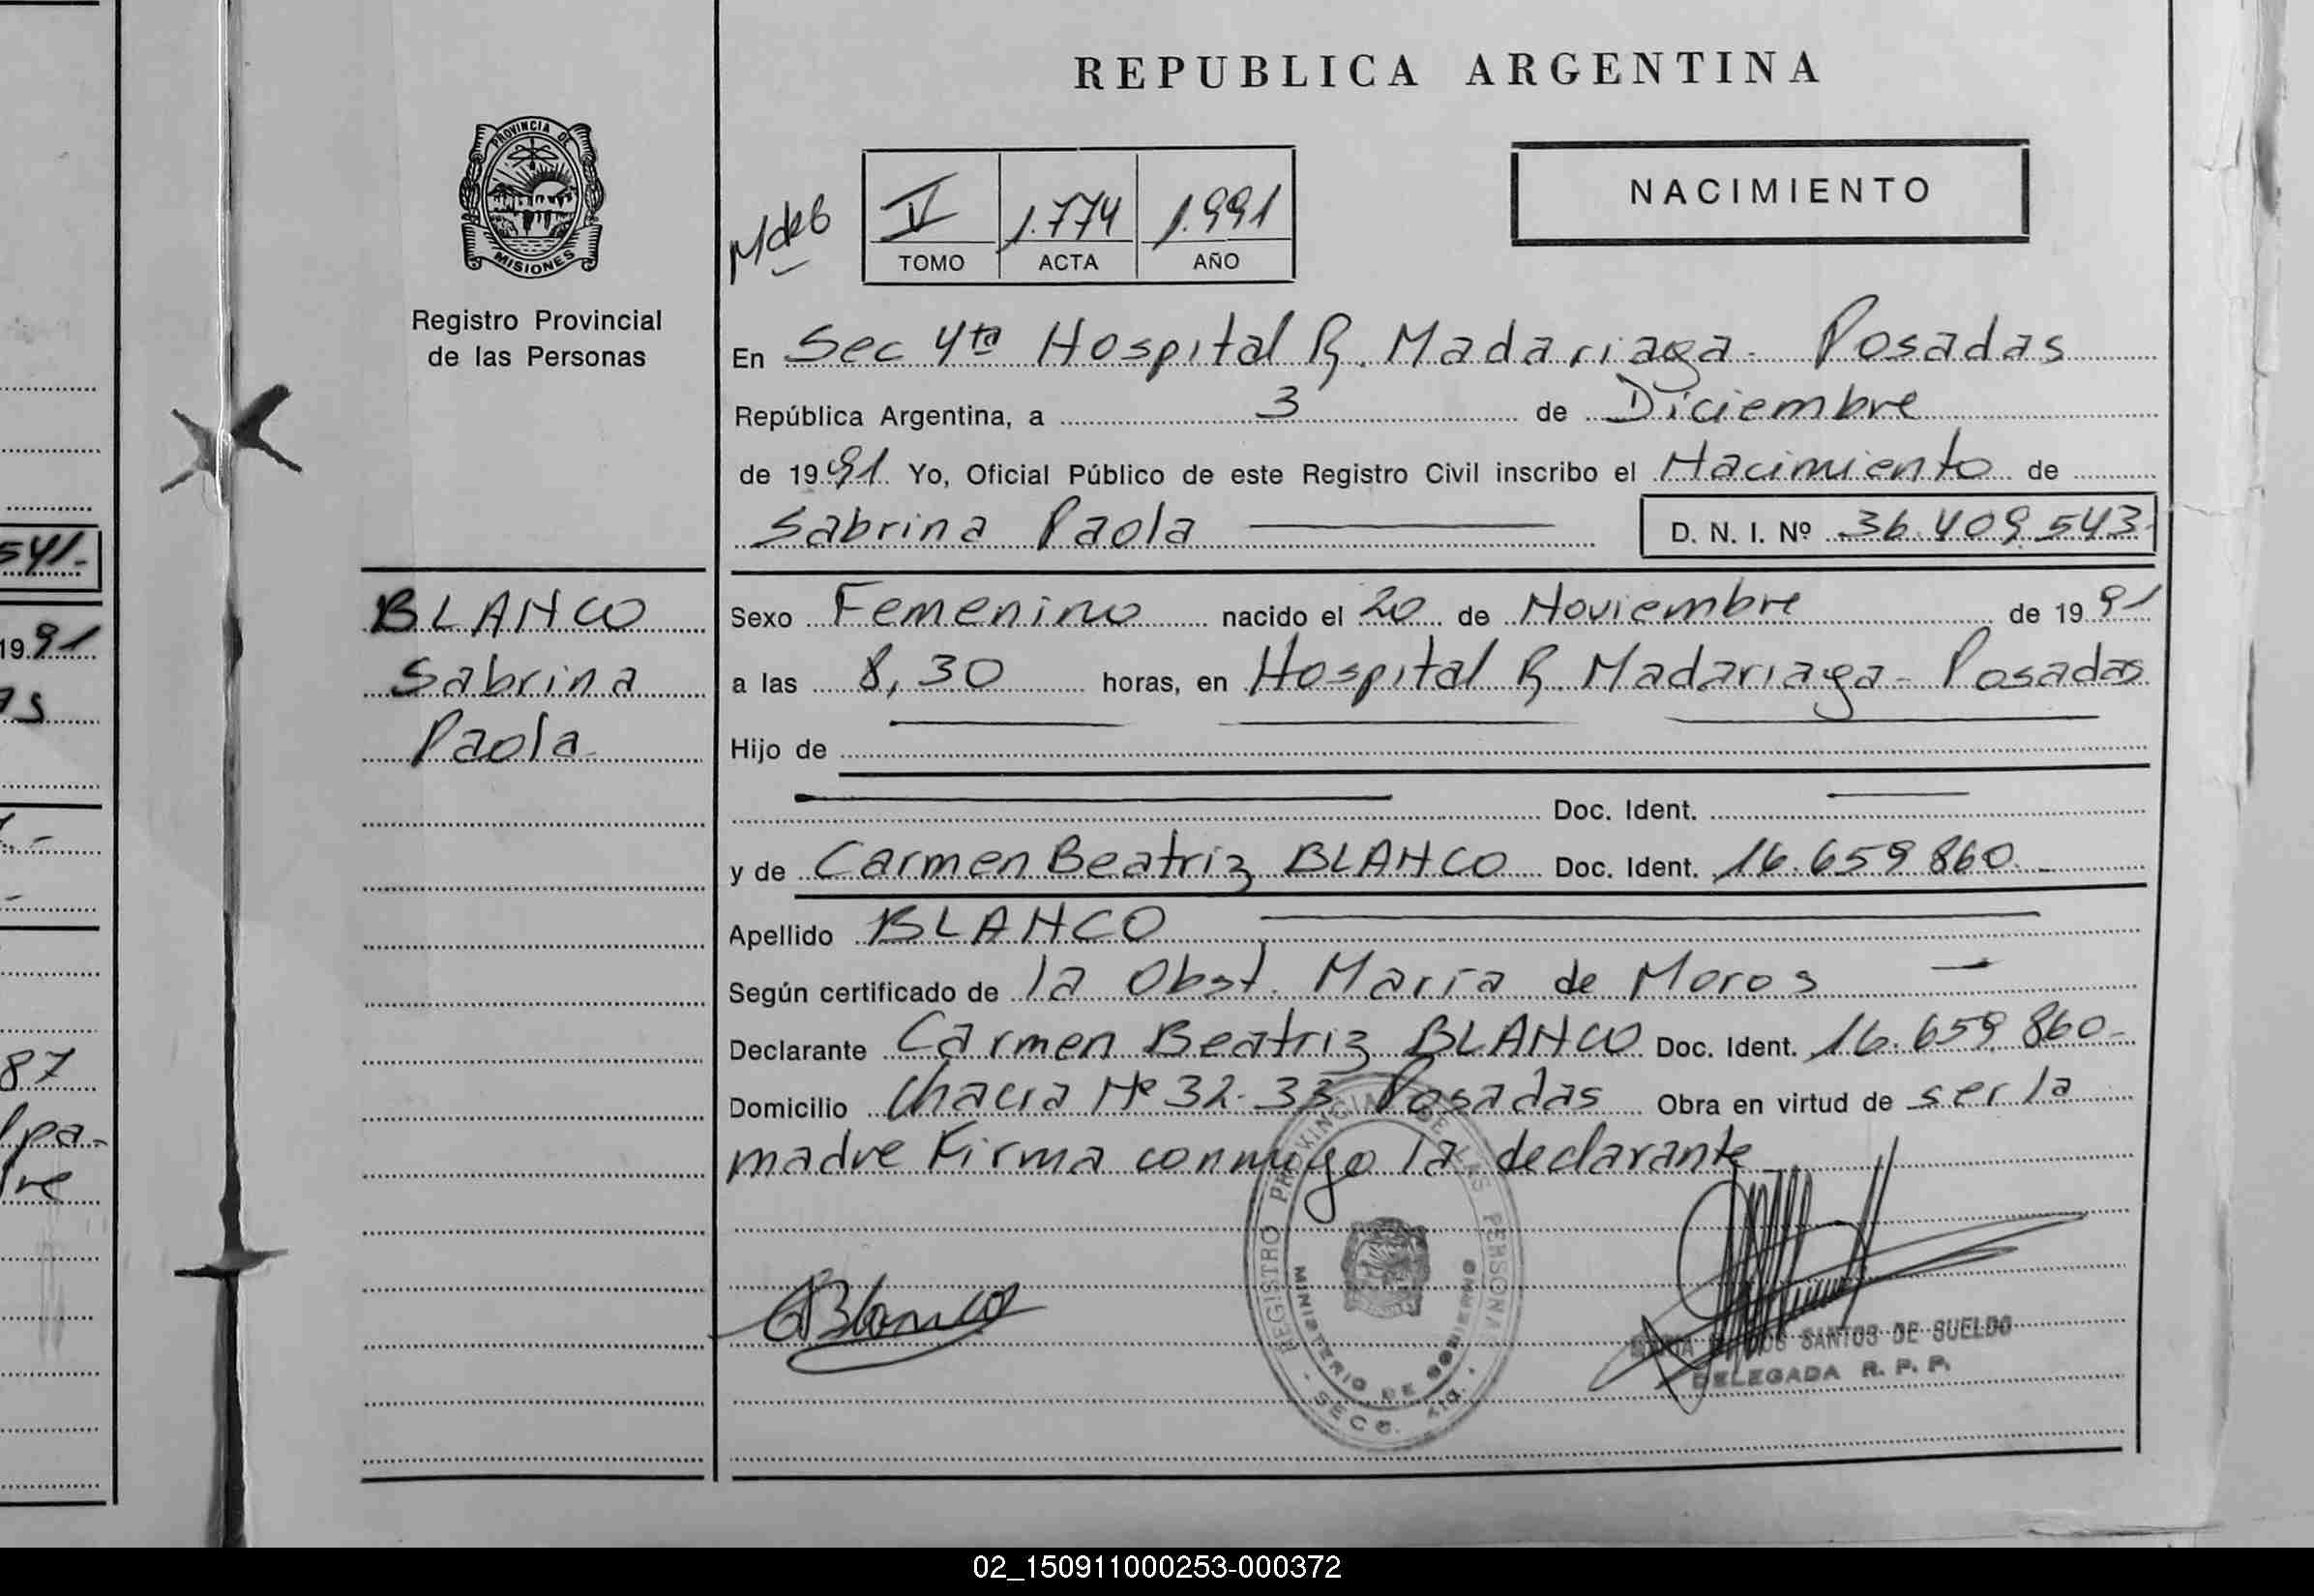 REPUBLICA ARGENTINA
PROVINCIA DE
MISIONES
Registro Provincial
de las Personas
NACIMIENTO
V 1.774 1.991
TOMO ACTA AÑO
En Sec 4ta Hospital R. Madariaga - Posadas
República Argentina, a 3 de Diciembre
de 1991 Yo, Oficial Público de este Registro Civil inscribo el Nacimiento de
Sabrina Paola D. N. I. Nº 36.409.543-
BLANCO
Sabrina
Paola
Sexo Femenino nacido el 20 de Noviembre de 1991
a las 8,30 horas, en Hospital R. Madariaga - Posadas
Hijo de
Doc. Ident.
y de Carmen Beatriz BLANCO Doc. Ident. 16.659.860.-
Apellido BLANCO
Según certificado de la Obst. María de Moros
Declarante Carmen Beatriz BLANCO Doc. Ident. 16.659.860-
Domicilio Chacra Nº 32-33 Posadas Obra en virtud de ser la
madre Firma conmigo la declarante
REGISTRO PROVINCIAL DE LAS PERSONAS
MINISTERIO DE GOBIERNO
SECC. 4ta.
Blanco
SANTOS DE SUELDO
DELEGADA R. P. P.
541.-
1991
as
87
pa-
re
02_150911000253-000372